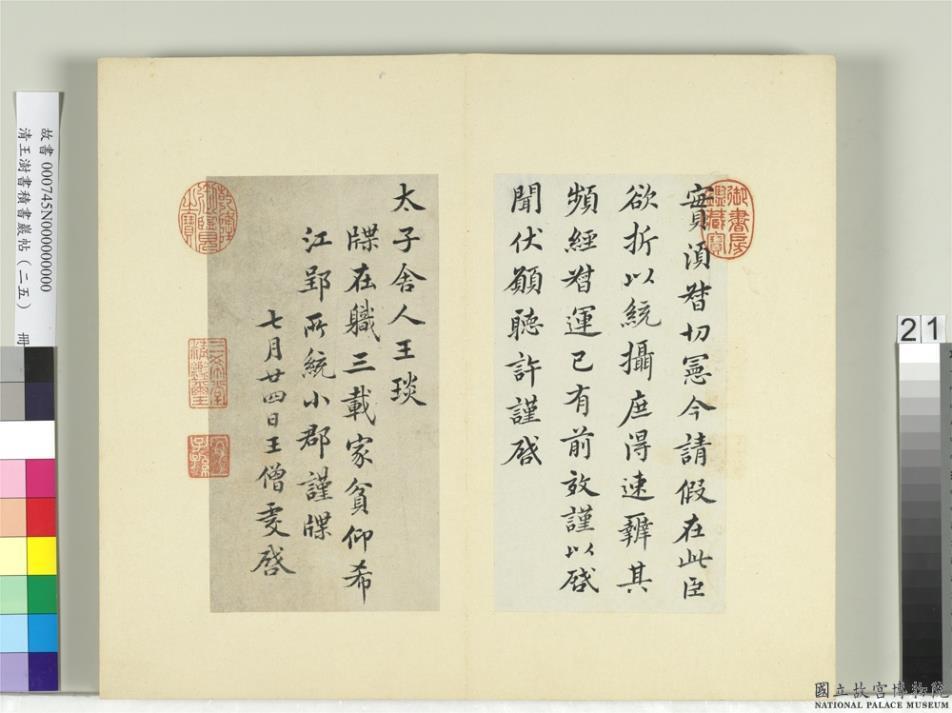 實須督切宪今請假在此臣
欲折以統攝庶得速辦其
頻經督運已有前效謹以啓
聞伏願聽許謹啓
太子舍人王琰
牒在職三載家貧仰希
江郢所統小郡謹牒
七月廿四日王僧虔啓
御書房鑑藏寶
故書 000745N000000000
清王澍書積書巖帖(二五) 冊
21
國立故宮博物院
NATIONAL PALACE MUSEUM